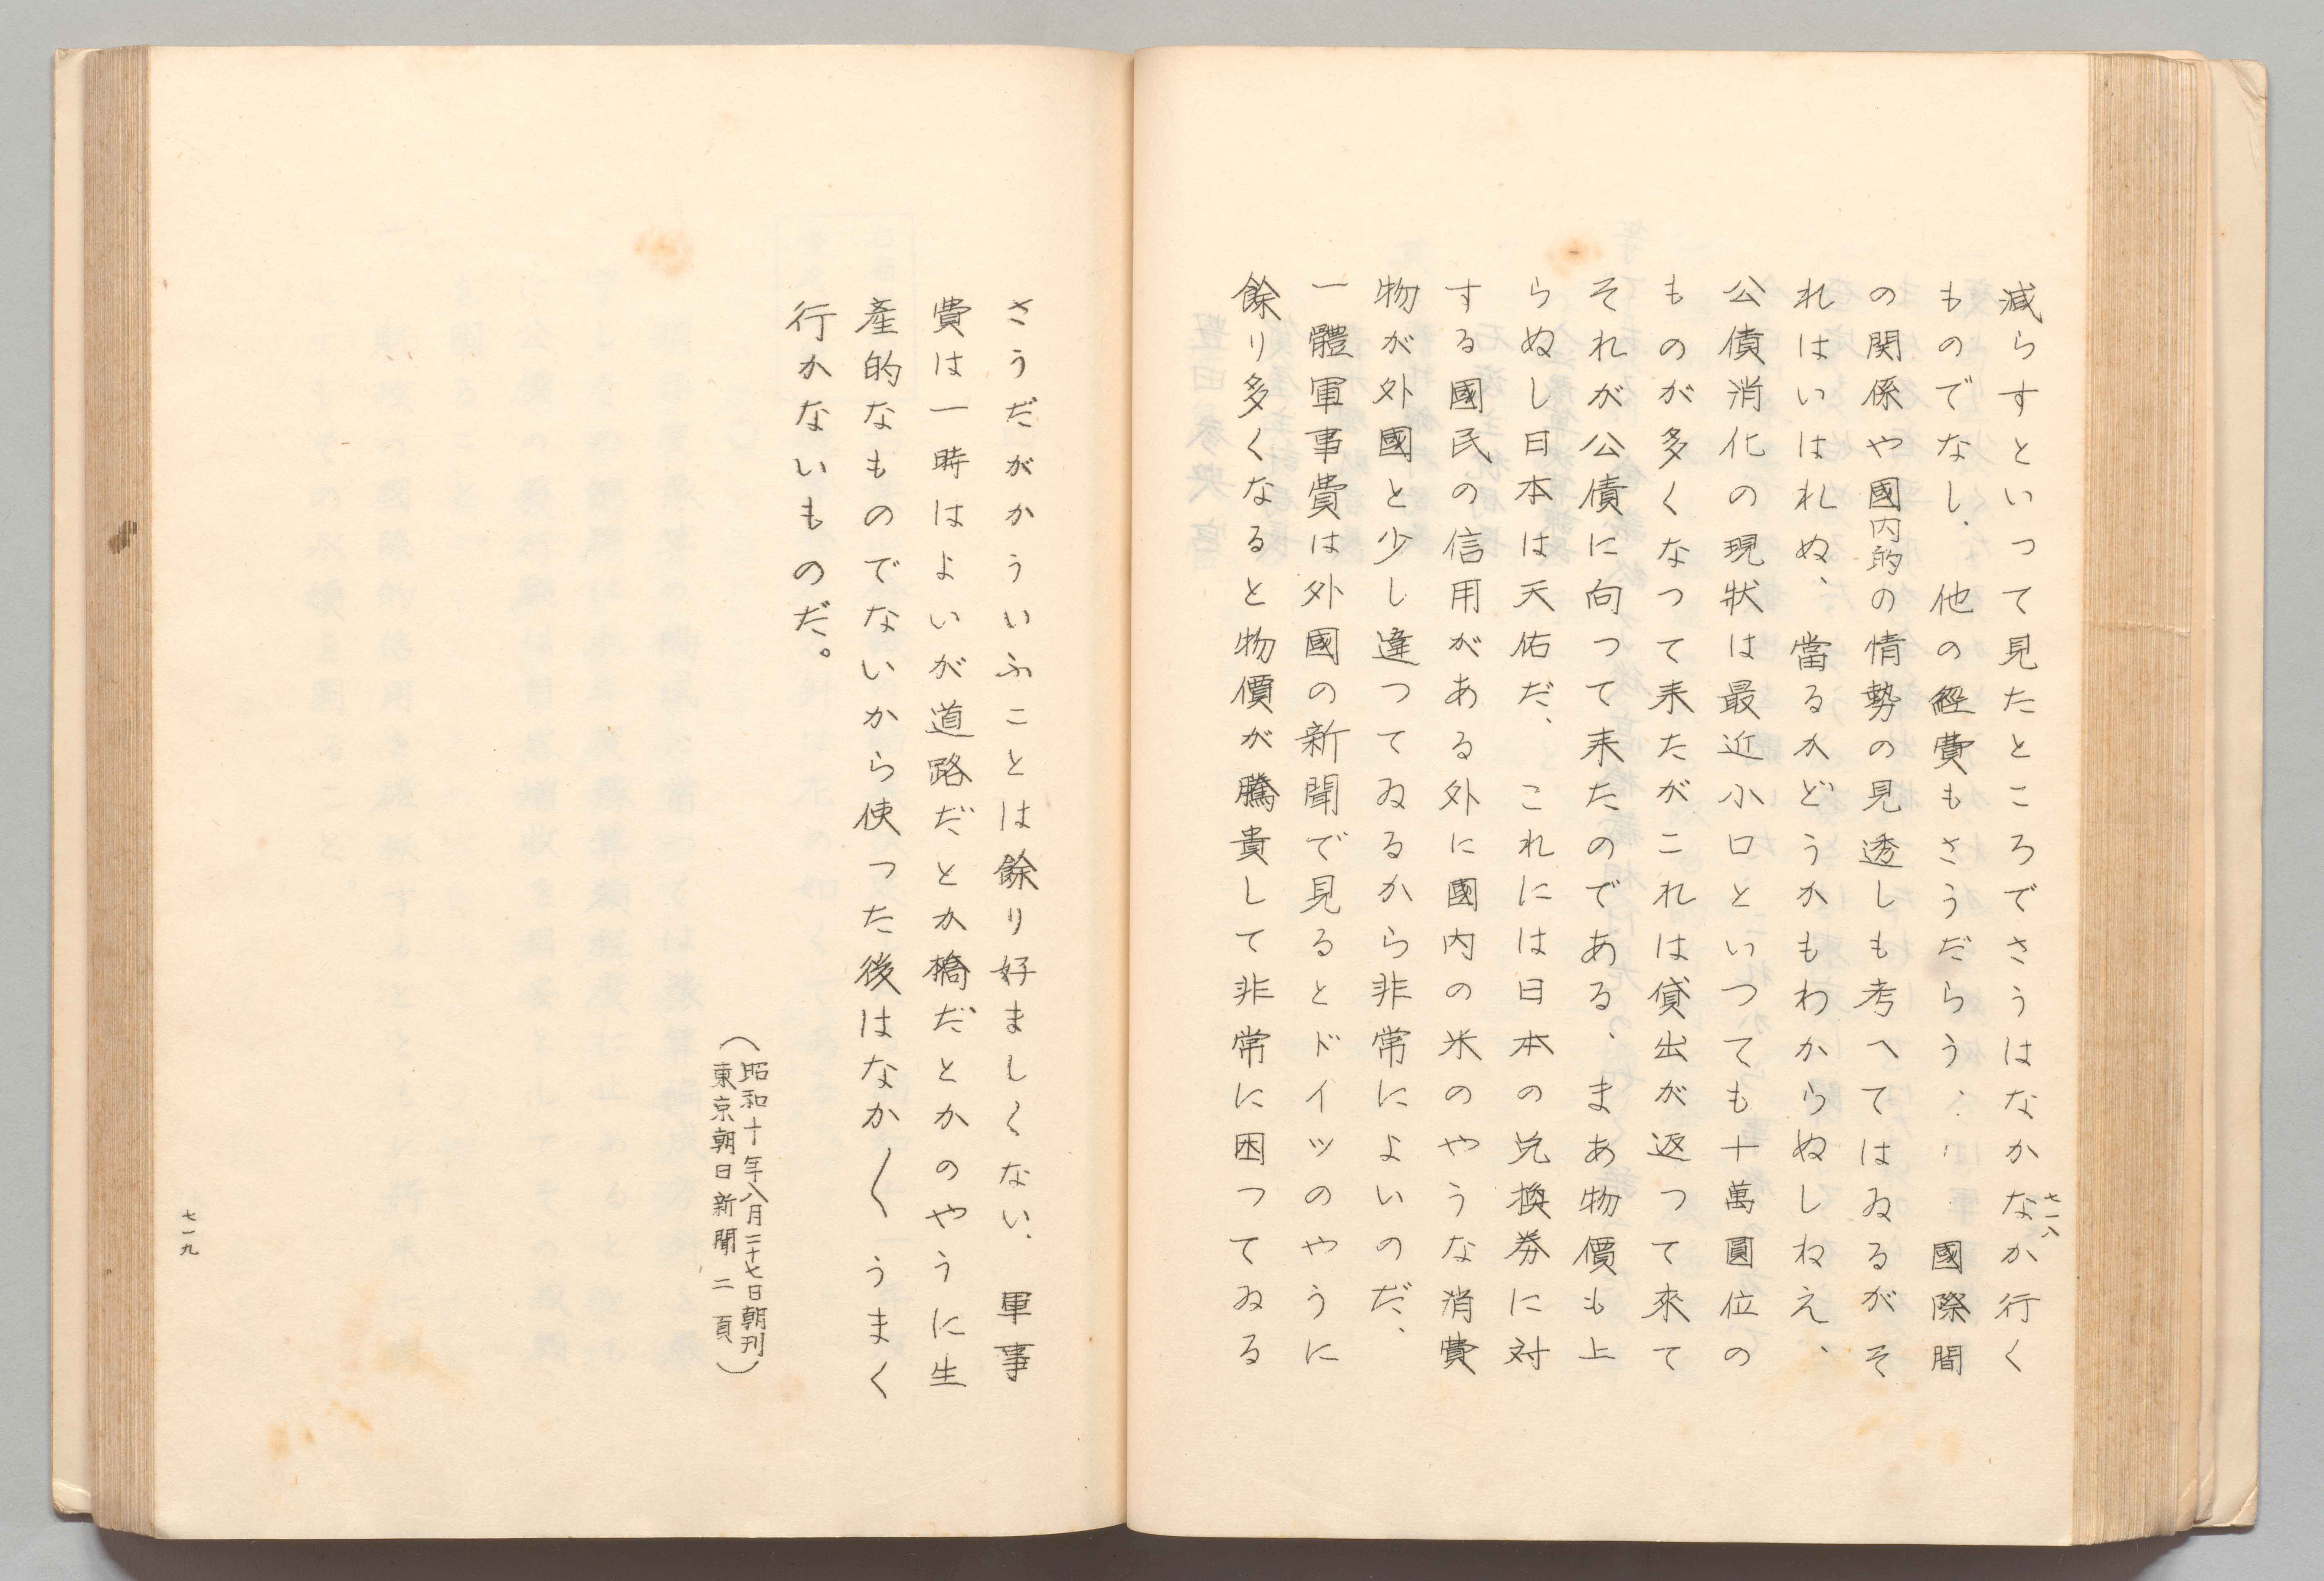 減らすといつて見たところでさうはなかなか行く
ものでなし、他の経費もさうだらう、國際間
の関係や國内的の情勢の見透しも考へてはゐるがそ
れはいはれぬ、當るかどうかもわからぬしねえ、
公債消化の現状は最近小口といつても十萬圓位の
ものが多くなつて来たがこれは貸出が返つて來て
それが公債に向つて来たのである、まあ物價も上
らぬし日本は天佑だ、これには日本の兌換券に対
する國民の信用がある外に國内の米のやうな消費
物が外國と少し違つてゐるから非常によいのだ、
一體軍事費は外國の新聞で見るとドイツのやうに
餘り多くなると物價が騰貴して非常に困つてゐる
七一八
さうだがかういふことは餘り好ましくない、軍事
費は一時はよいが道路だとか橋だとかのやうに生
產的なものでないから使つた後はなか〱うまく
行かないものだ。
（昭和十年八月二十七日朝刊
東京朝日新聞二頁）
七一九